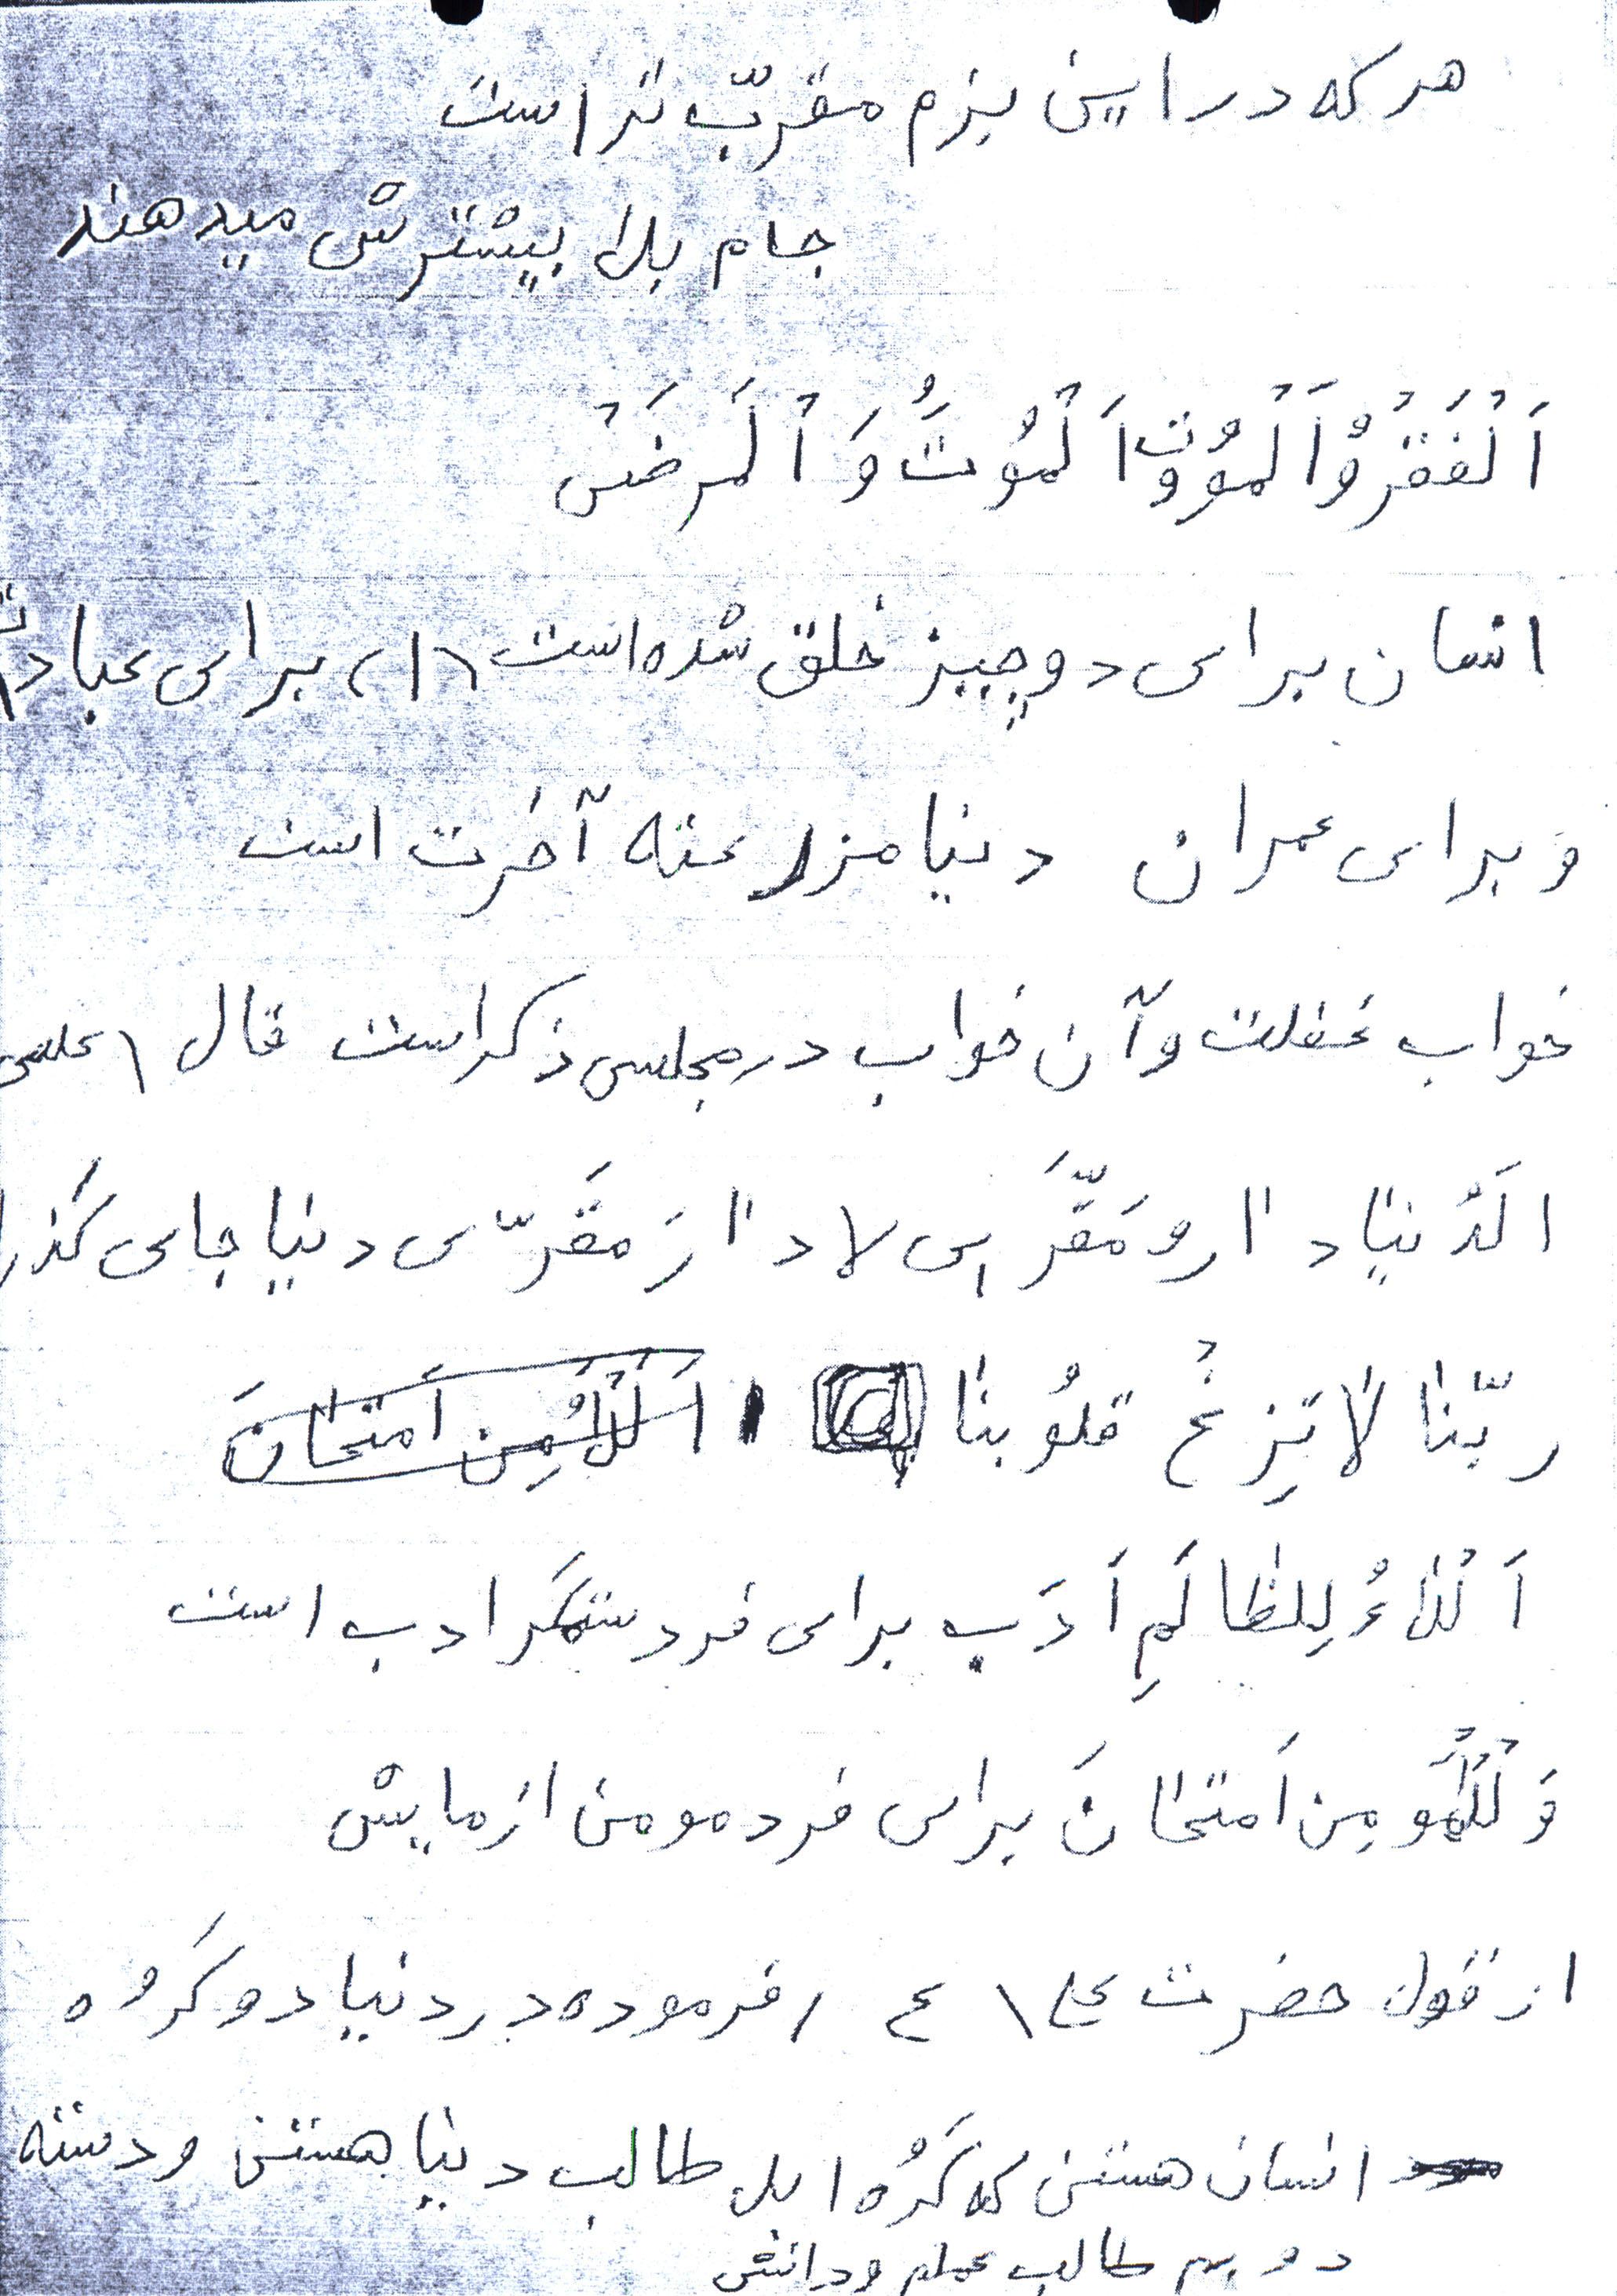 هر که در این بزم مقرّب تر است
جام بلا بیشترش میدهند
اَلْفَقْرُ اَلْمُوْتُ اَلْمُوتُ وَ اْلَمرَضْ
انسان برای دو چیز خلق شده است (۱) برای عبادت
و برای عمران دنیا مزرعته آخرت است
خواب غفلت و آن خواب در مجلس ذکر است قال (علی
الَدُنیٰا دٰارو مَقّرَ یی لا دٰارَ مَقَرّی دنیا جای گذر
ربّنا لاٰ تِزغْ قلوُبنا اَللْمُومِن اَمتحٰانَ
اَلْبلاٰءُ لِلظالَمِ اَدَب برای فرد ستمگر ادب است
وَ لْلمُومِن اَمتحٰانَ برای فرد مومن ازمایش
از قول حضرت علی (ع) فرموده در دنیا دو گروه
انسان هستن که گروُه اول طالب دنیا هستن و دسته
دویم طالب علم و دانش